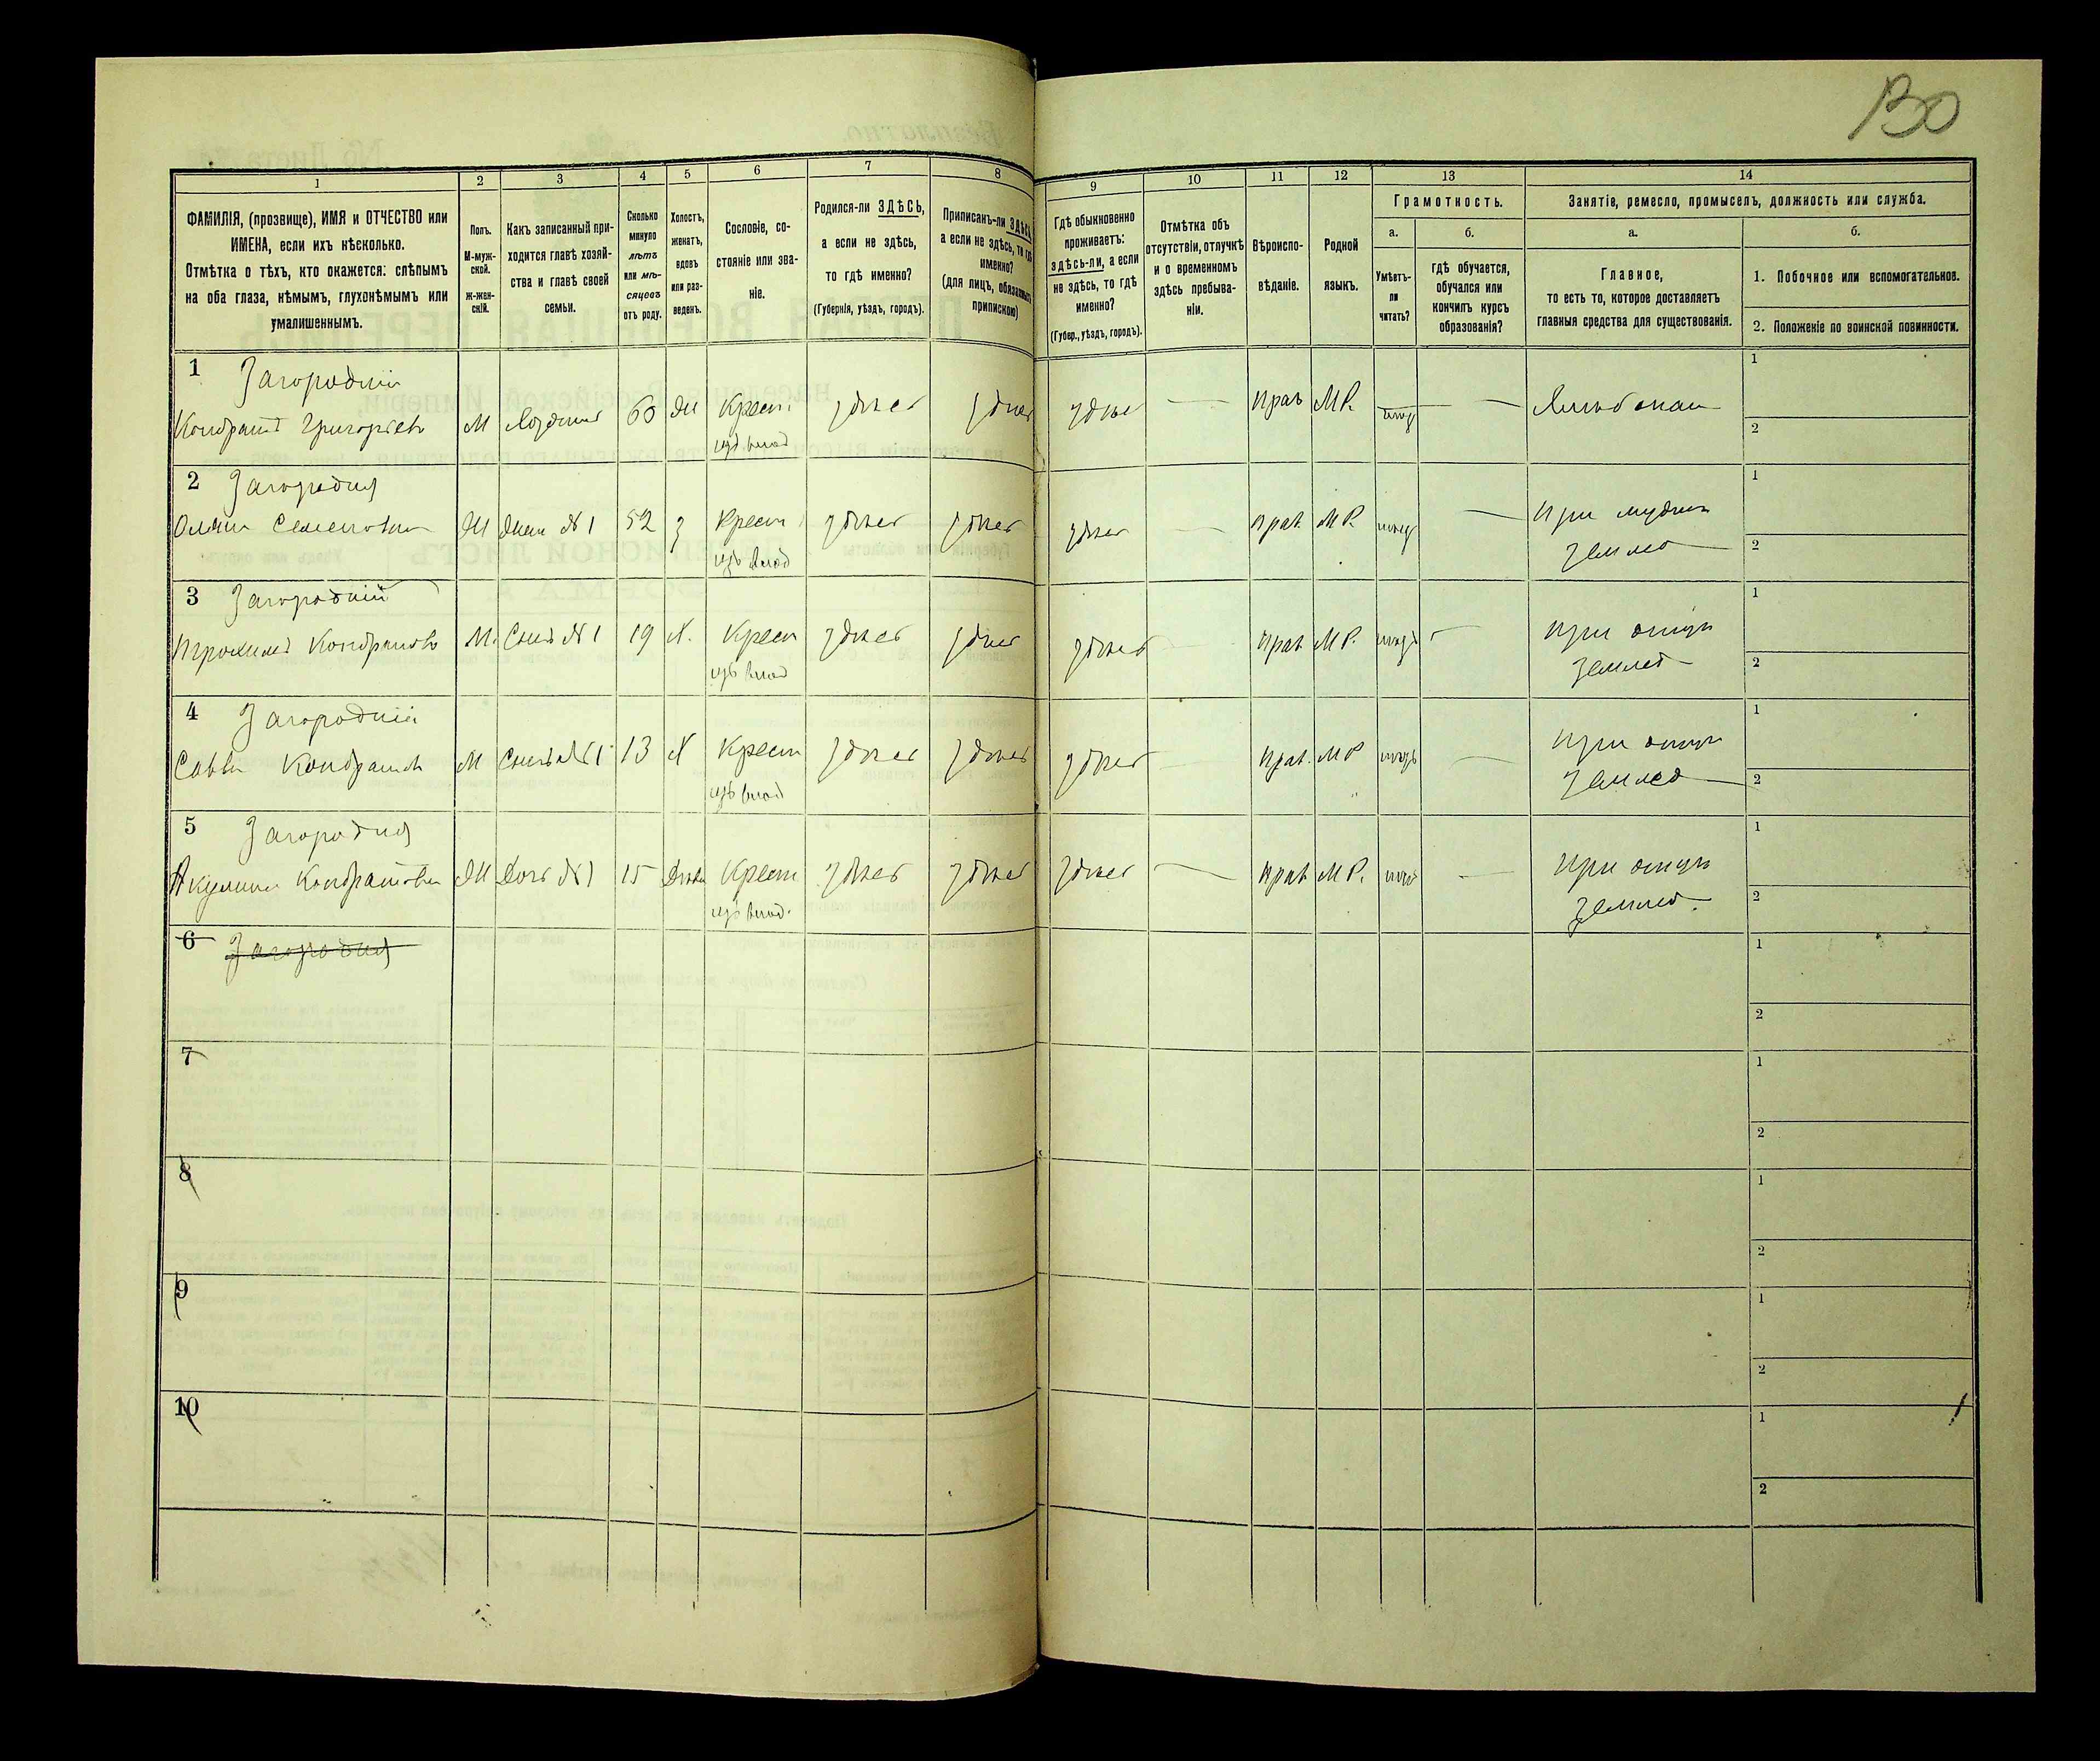 130
1
2
3
4
5
6
7
8
9
10
11
12
13
14
ФАМИЛІЯ, (прозвище), ИМЯ и ОТЧЕСТВО или
ИМЕНА, если ихъ нѣсколько.
Отмѣтка о тѣхъ, кто окажется: слѣпымъ
на оба глаза, нѣмымъ, глухонѣмымъ или
умалишеннымъ.
Полъ.
М-муж-
ской.
Ж-жен-
скій.
Какъ записанный при-
ходится главѣ хозяй-
ства и главѣ своей
семьи.
Сколько
минуло
лѣтъ
или мѣ-
сяцевъ
отъ роду.
Холостъ,
женатъ,
вдовъ
или раз-
веденъ.
Сословіе, со-
стояніе или зва-
ніе.
Родился-ли ЗДѢСЬ,
а если не здѣсь,
то гдѣ именно?
(Губернія, уѣздъ, городъ).
Приписанъ-ли ЗДѢСЬ
а если не здѣсь, то гдѣ
именно?
(для лицъ, обязанныхъ
припискою)
Гдѣ обыкновенно
проживаетъ:
здѣсь-ли, а если
не здѣсь, то гдѣ
именно?
(Губер., уѣздъ, городъ).
Отмѣтка объ
отсутствіи, отлучкѣ
и о временномъ
здѣсь пребыва-
ніи.
Вѣроиспо-
вѣданіе.
Родной
языкъ.
Грамотность.
а.
Умѣетъ-
ли
читать?
б.
гдѣ обучается,
обучался или
кончилъ курсъ
образованія?
Занятіе, ремесло, промыселъ, должность или служба.
а.
Главное,
то есть то, которое доставляетъ
главныя средства для существованія.
б.
1. Побочное или вспомогательное.
2. Положеніе по воинской повинности.
1 Загородній
Кондратъ Григорьевъ М Хозяинъ 60 Ж Крест. здѣсь здѣсь здѣсь — Прав М.Р. — —
изъ влад
1
2
2 Загородня
Семеновна Ж Жена №1 52 З Крест здѣсь здѣсь здѣсь — Прав. М.Р. — При мужѣ
изъ влад землед
1
2
3 Загородній
Кондратовъ М. Сынъ №1 19 Х. Крест здѣсь здѣсь здѣсь — Прав. М.Р. — При отцѣ
изъ влад землед
1
2
4 Загородній
Савва Кондратовъ М Сынъ №1 13 Х Крест здѣсь здѣсь здѣсь — Прав. М.Р — При отцѣ
изъ влад землед
1
2
5 Загородня
Акулина Кондратовна Ж Дочь №1 15 Крест здѣсь здѣсь здѣсь — Прав М.Р. — При отцѣ
изъ влад. землед.
1
2
6 Загородня
1
2
7
1
2
8
1
2
9
1
2
10
1
2